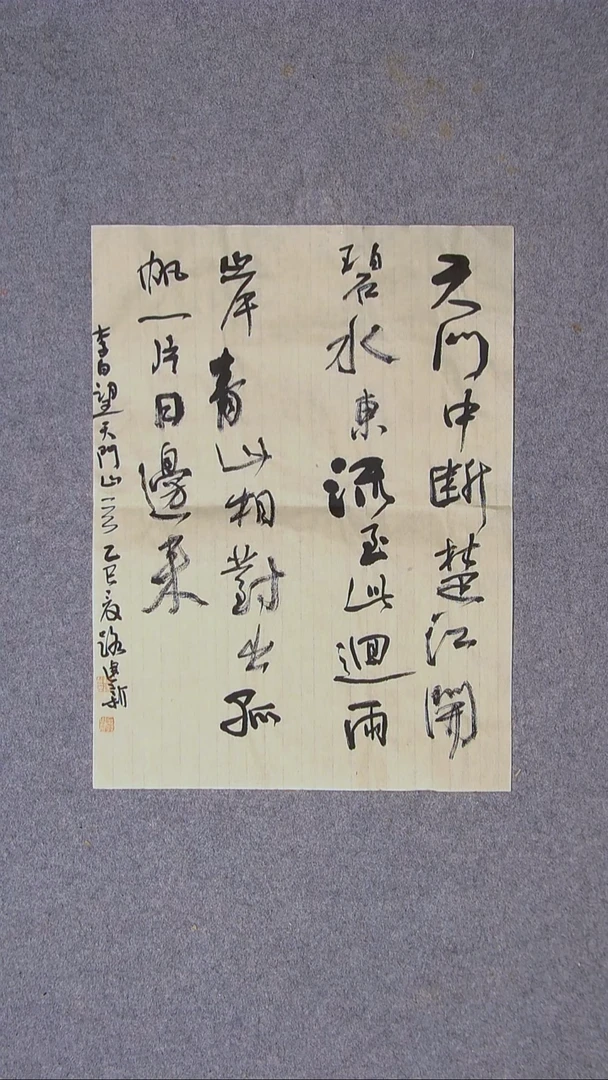 天門中斷楚江開
碧水東流至此迴兩
岸青山相對出孤
帆一片日邊來
李白望天門山一首乙巳夏路建新